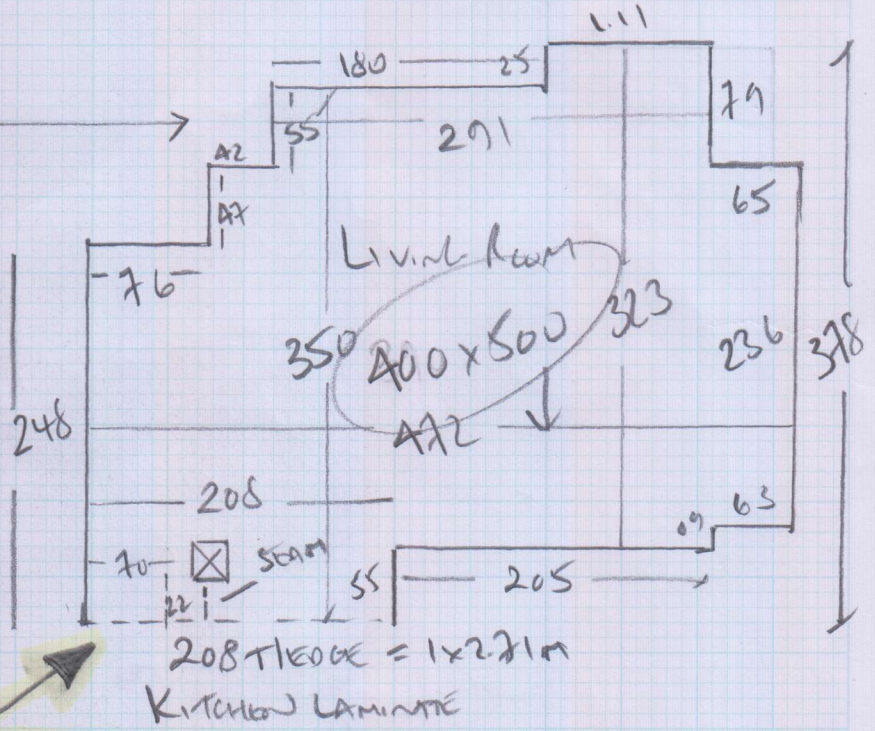 1.11
180 25
79
55 291
42
47
65
76
LIVING ROOM
350 400 x 500 323 236 378
248 472
208
63
.09
70 SEAM
22 55 205
208 T/EDGE = 1x2.71M
KITCHEN LAMINATE